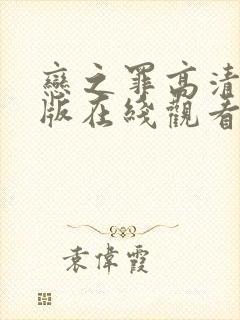 戀之罪高清
版在綫觀看
袁偉霞